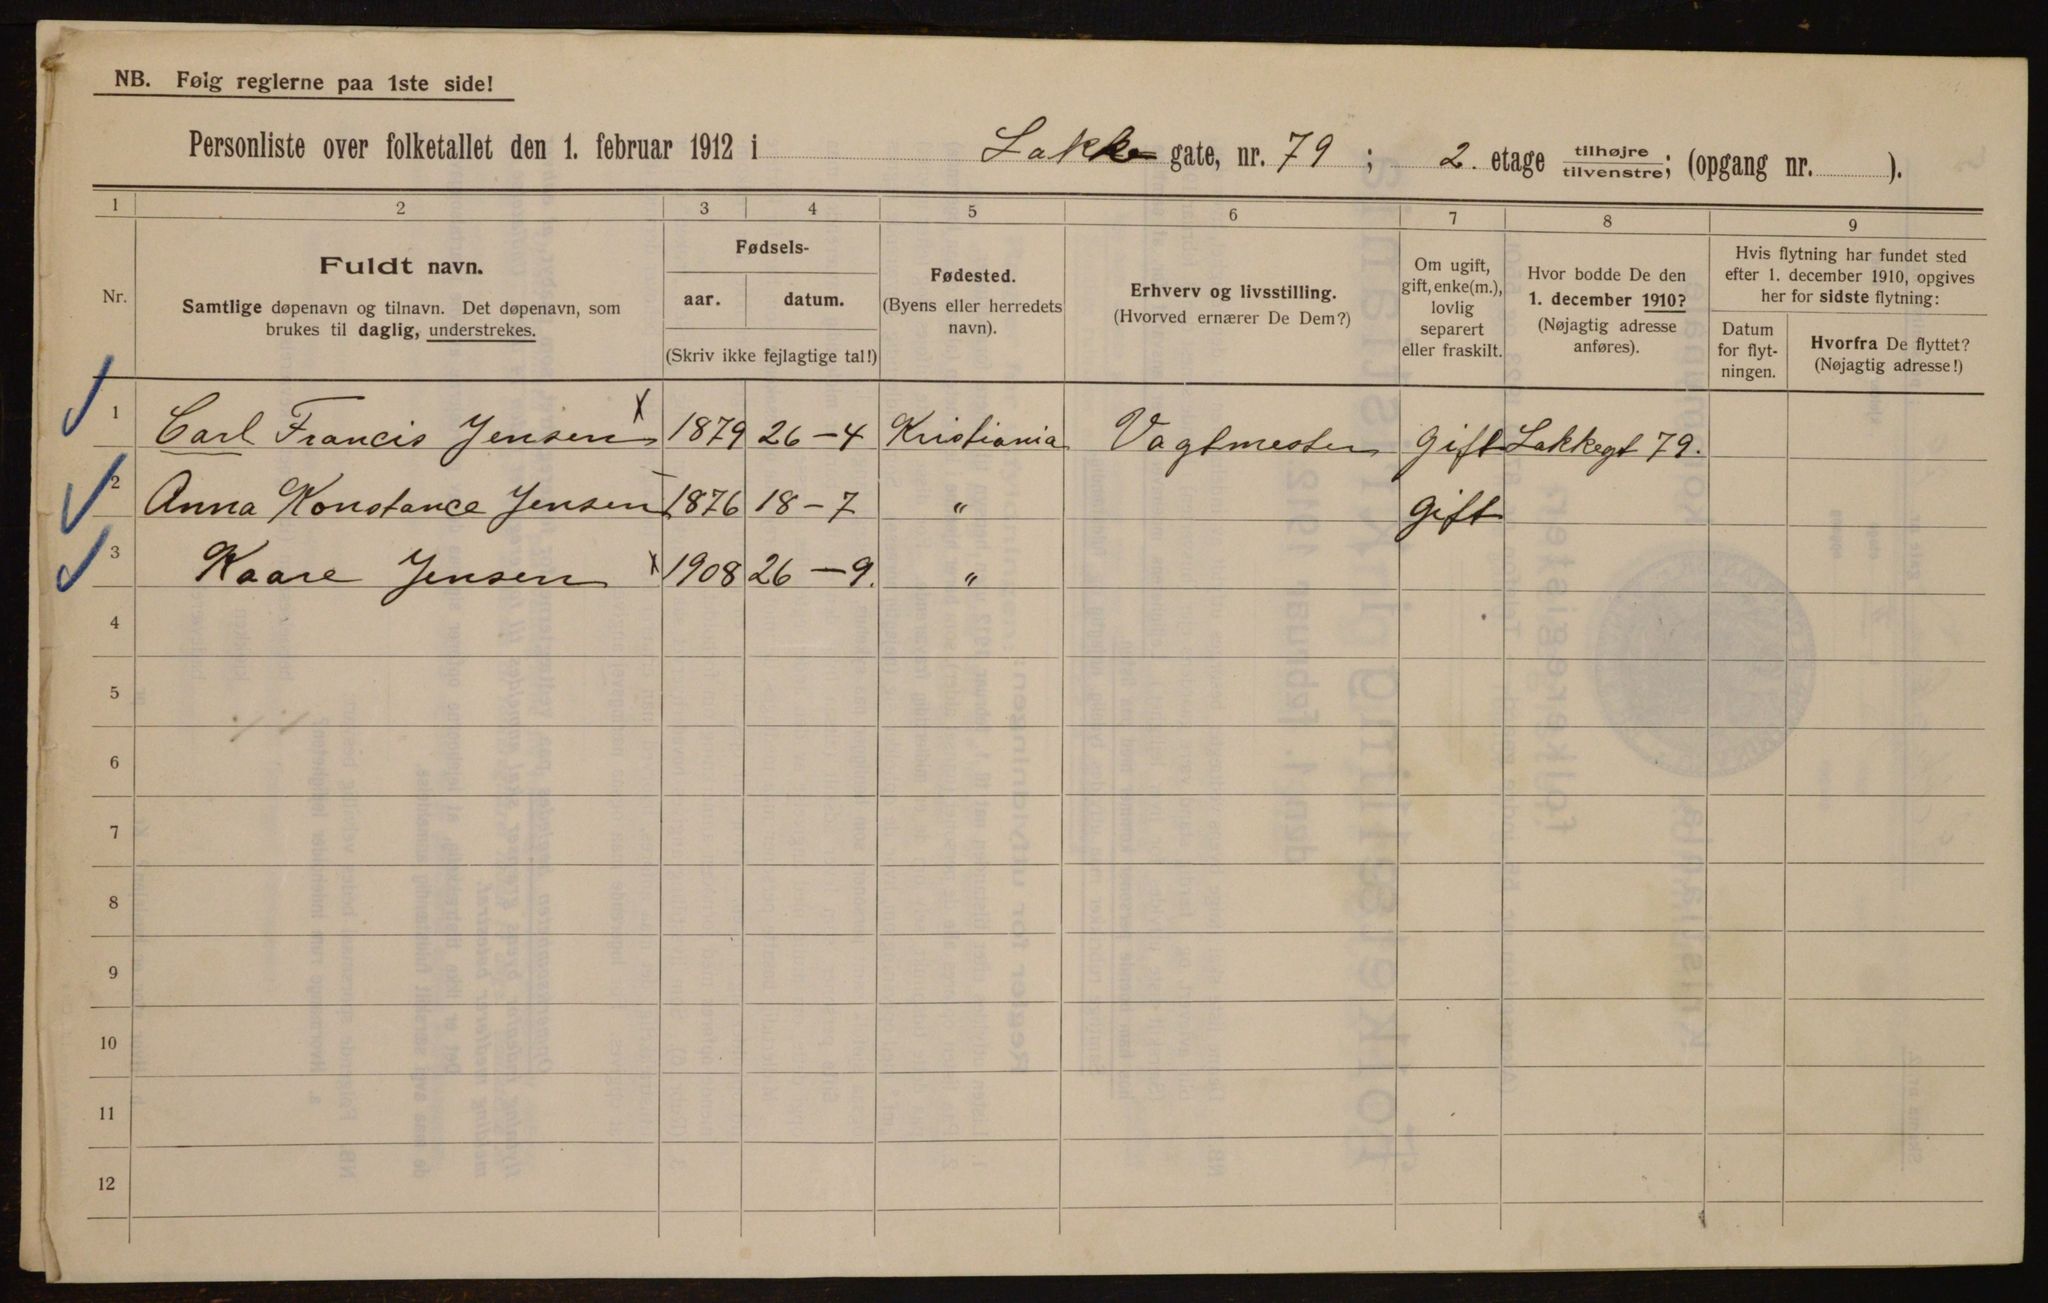 NB. Følg reglerne paa 1ste side!
Personliste over folketallet den 1. februar 1912 i Lakke gate, nr. 79 ; 2. etage tilhøjre tilvenstre; (opgang nr. ).
1 2 3 4 5 6 7 8 9
Nr.
Fuldt navn.
Samtlige døpenavn og tilnavn. Det døpenavn, som
brukes til daglig, understrekes.
Fødsels-
aar. datum.
(Skriv ikke fejlagtige tal!)
Fødested.
(Byens eller herredets
navn).
Erhverv og livsstilling.
(Hvorved ernærer De Dem?)
Om ugift,
gift, enke(m.),
lovlig
separert
eller fraskilt.
Hvor bodde De den
1. december 1910?
(Nøjagtig adresse
anføres).
Hvis flytning har fundet sted
efter 1. december 1910, opgives
her for sidste flytning:
Datum
for flyt-
ningen.
Hvorfra De flyttet?
(Nøjagtig adresse!)
1 Carl Francis Jensen x 1879 26-4 Kristiania Vagtmester Gift Lakkegt 79.
2 Anna Konstance Jensen 1876 18-7 " Gift
3 Kaare Jensen x 1908 26-9. "
4
5
6
7
8
9
10
11
12